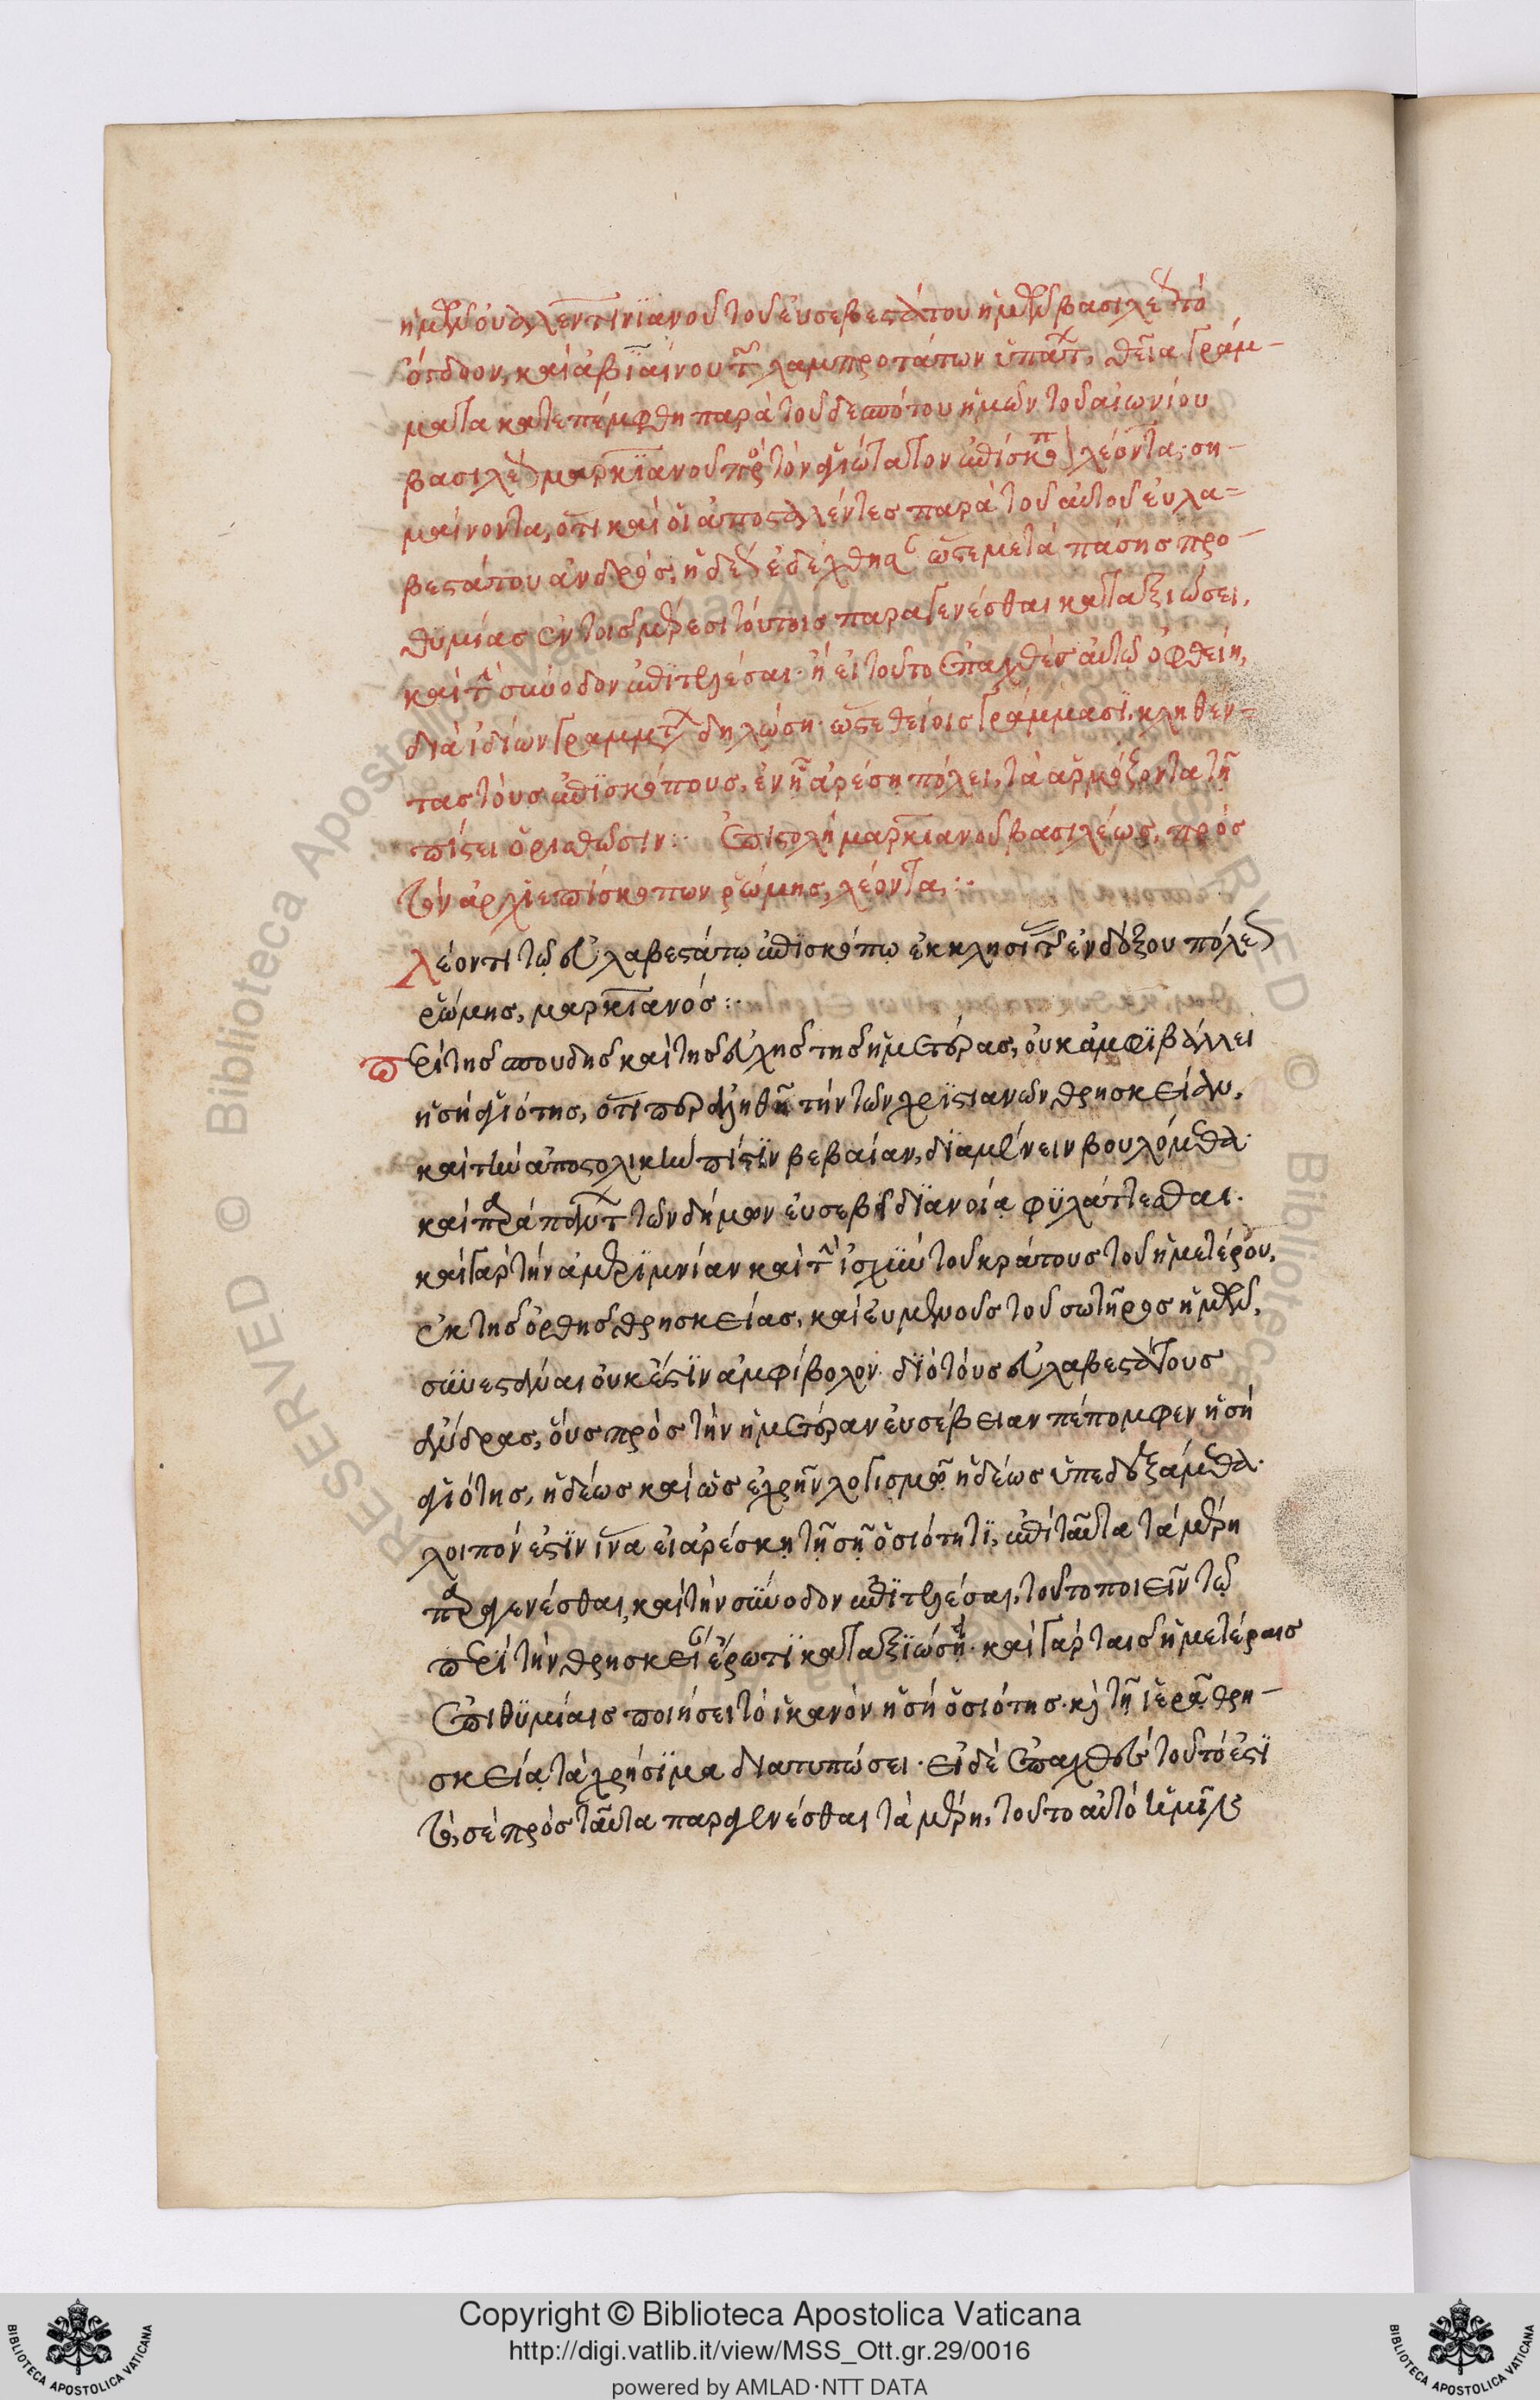 ἡμῶν οὐαλεντινϊανοῦ τοῦ εὐσεβεστάτου ἡμῶν βασιλέως τὸ
ὄγδοον, καὶ ἀβϊαίνου τῶν λαμπροτάτων ὑπάτων, θεῖα γράμ-
ματα κατεπέμφθη παρὰ τοῦ δεσπότου ἡμῶν τοῦ αἰωνίου
βασιλέως μαρκϊανοῦ πρὸς τὸν ἁγιώτατον ἐπίσκοπον λέοντα· ση-
μαίνοντα, ὅτι καὶ οἱ ἀποσταλέντες παρὰ τοῦ αὐτοῦ εὐλα-
βεστάτου ἀνδρὸς, ἡδέως ἐδέχθησαν ὥστε μετὰ πάσης προ-
θυμίας ἐν τοῖς μέρεσι τούτοις παραγενέσθαι καταξιώσει,
καὶ τὴν σύνοδον ἐπιτελέσαι· ἢ εἰ τοῦτο ἐπαχθὲς αὐτῷ ὀφθείη,
διὰ ἰδίων γραμμάτων δηλώσῃ· ὥστε θείοις γράμμασϊ, κληθέν-
τας τοὺς ἐπϊσκόπους, ἐν ᾗ ἀρέσῃ πόλει, τὰ ἁρμόζοντα τῇ
πίστει ὁρισθῶσιν:· Ἐπιστολὴ μαρκιανοῦ βασιλέως, πρὸς
τὸν ἀρχϊεπίσκοπον ῥώμης, λέοντα:·
Λέοντι τῷ εὐλαβεστάτῳ ἐπϊσκόπῳ ἐκκλησίας τῆς ἐνδόξου πόλεως
ῥώμης, μαρκϊανός:·
Περὶ τῆς σπουδῆς καὶ τῆς εὐχῆς τῆς ἡμετέρας, οὐκ ἀμφϊβάλλει
ἡ σὴ ἁγιότης, ὅτι περ ἀληθῆ τὴν τῶν χρϊστιανῶν θρησκείαν,
καὶ τὴν ἀποστολικὴν πίστϊν βεβαίαν, δϊαμένειν βουλόμεθα·
καὶ παρὰ πάντων τῶν δήμων εὐσεβεῖ δϊανοίᾳ φϋλάττεσθαι·
καὶ γὰρ τὴν ἀμερϊμνίαν καὶ τὴν ἰσχϋν τοῦ κράτους τοῦ ἡμετέρου,
ἐκ τῆς ὀρθῆς θρησκείας, καὶ εὐμενοῦς τοῦ σωτῆρος ἡμῶν,
σϋνεστάναι οὐκ ἔστϊν ἀμφίβολον· δϊὸ τοὺς εὐλαβεστάτους
ἄνδρας, οὓς πρὸς τὴν ἡμετέραν εὐσέβειαν πέπομφεν ἡ σὴ
ἁγιότης, ἡδέως καὶ ὡς ἐχρῆν λογισμῷ ἡδέως ὑπεδεξάμεθα·
λοιπόν ἐστϊν ἵνα εἰ ἀρέσκῃ τῇ σῇ ὁσιότητϊ, ἐπὶ ταῦτα τὰ μέρη
παραγενέσθαι, καὶ τὴν σϋνοδον ἐπϊτελέσαι, τοῦτο ποιεῖν τῷ
περὶ τὴν θρησκείαν ἔρωτϊ καταξϊώσῃ· καὶ γὰρ ταῖς ἡμετέραις
ἐπιθϋμίαις ποιήσει τὸ ἱκανὸν ἡ σὴ ὁσιότης· καὶ τῇ ἱερᾷ θρη-
σκείᾳ τὰ χρήσϊμα διατυπώσει· εἰ δὲ ἐπαχθὲς τοῦτό ἐστϊ
τὸ, σὲ πρὸς ταῦτα παραγενέσθαι τὰ μέρη, τοῦτο αὐτὸ ἡμῖν